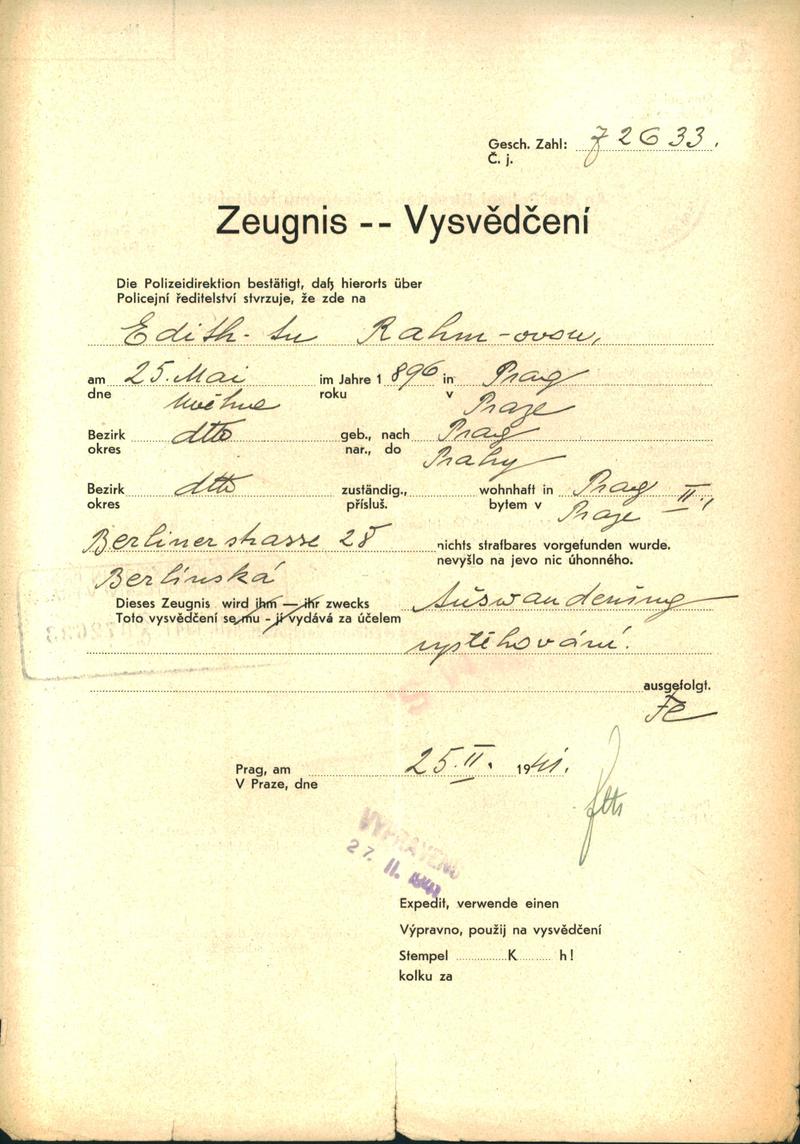 Gesch. Zahl: 72633.
Č. j.
Zeugnis -- Vysvědčení
Die Polizeidirektion bestätigt, daß hierorts über
Policejní ředitelství stvrzuje, že zde na
Edith-tu Rahm-ovou,
am 25. Mai im Jahre 1896 in Prag
dne května roku v Praze
Bezirk dtto geb., nach Prag
okres nar., do Prahy
Bezirk dtto zuständig., wohnhaft in Prag II.,
okres přísluš. bytem v Praze
Berlinerstrasse 28 nichts strafbares vorgefunden wurde.
Berlínská nevyšlo na jevo nic úhonného.
Dieses Zeugnis wird ihm — ihr zwecks Auswanderung
Toto vysvědčení se mu - jí vydává za účelem
vystěhování.
ausgefolgt.
Prag, am 25. II. 1941.
V Praze, dne
VYPRAVENO
27. II. 1941
Expedit, verwende einen
Výpravno, použij na vysvědčení
Stempel K h!
kolku za